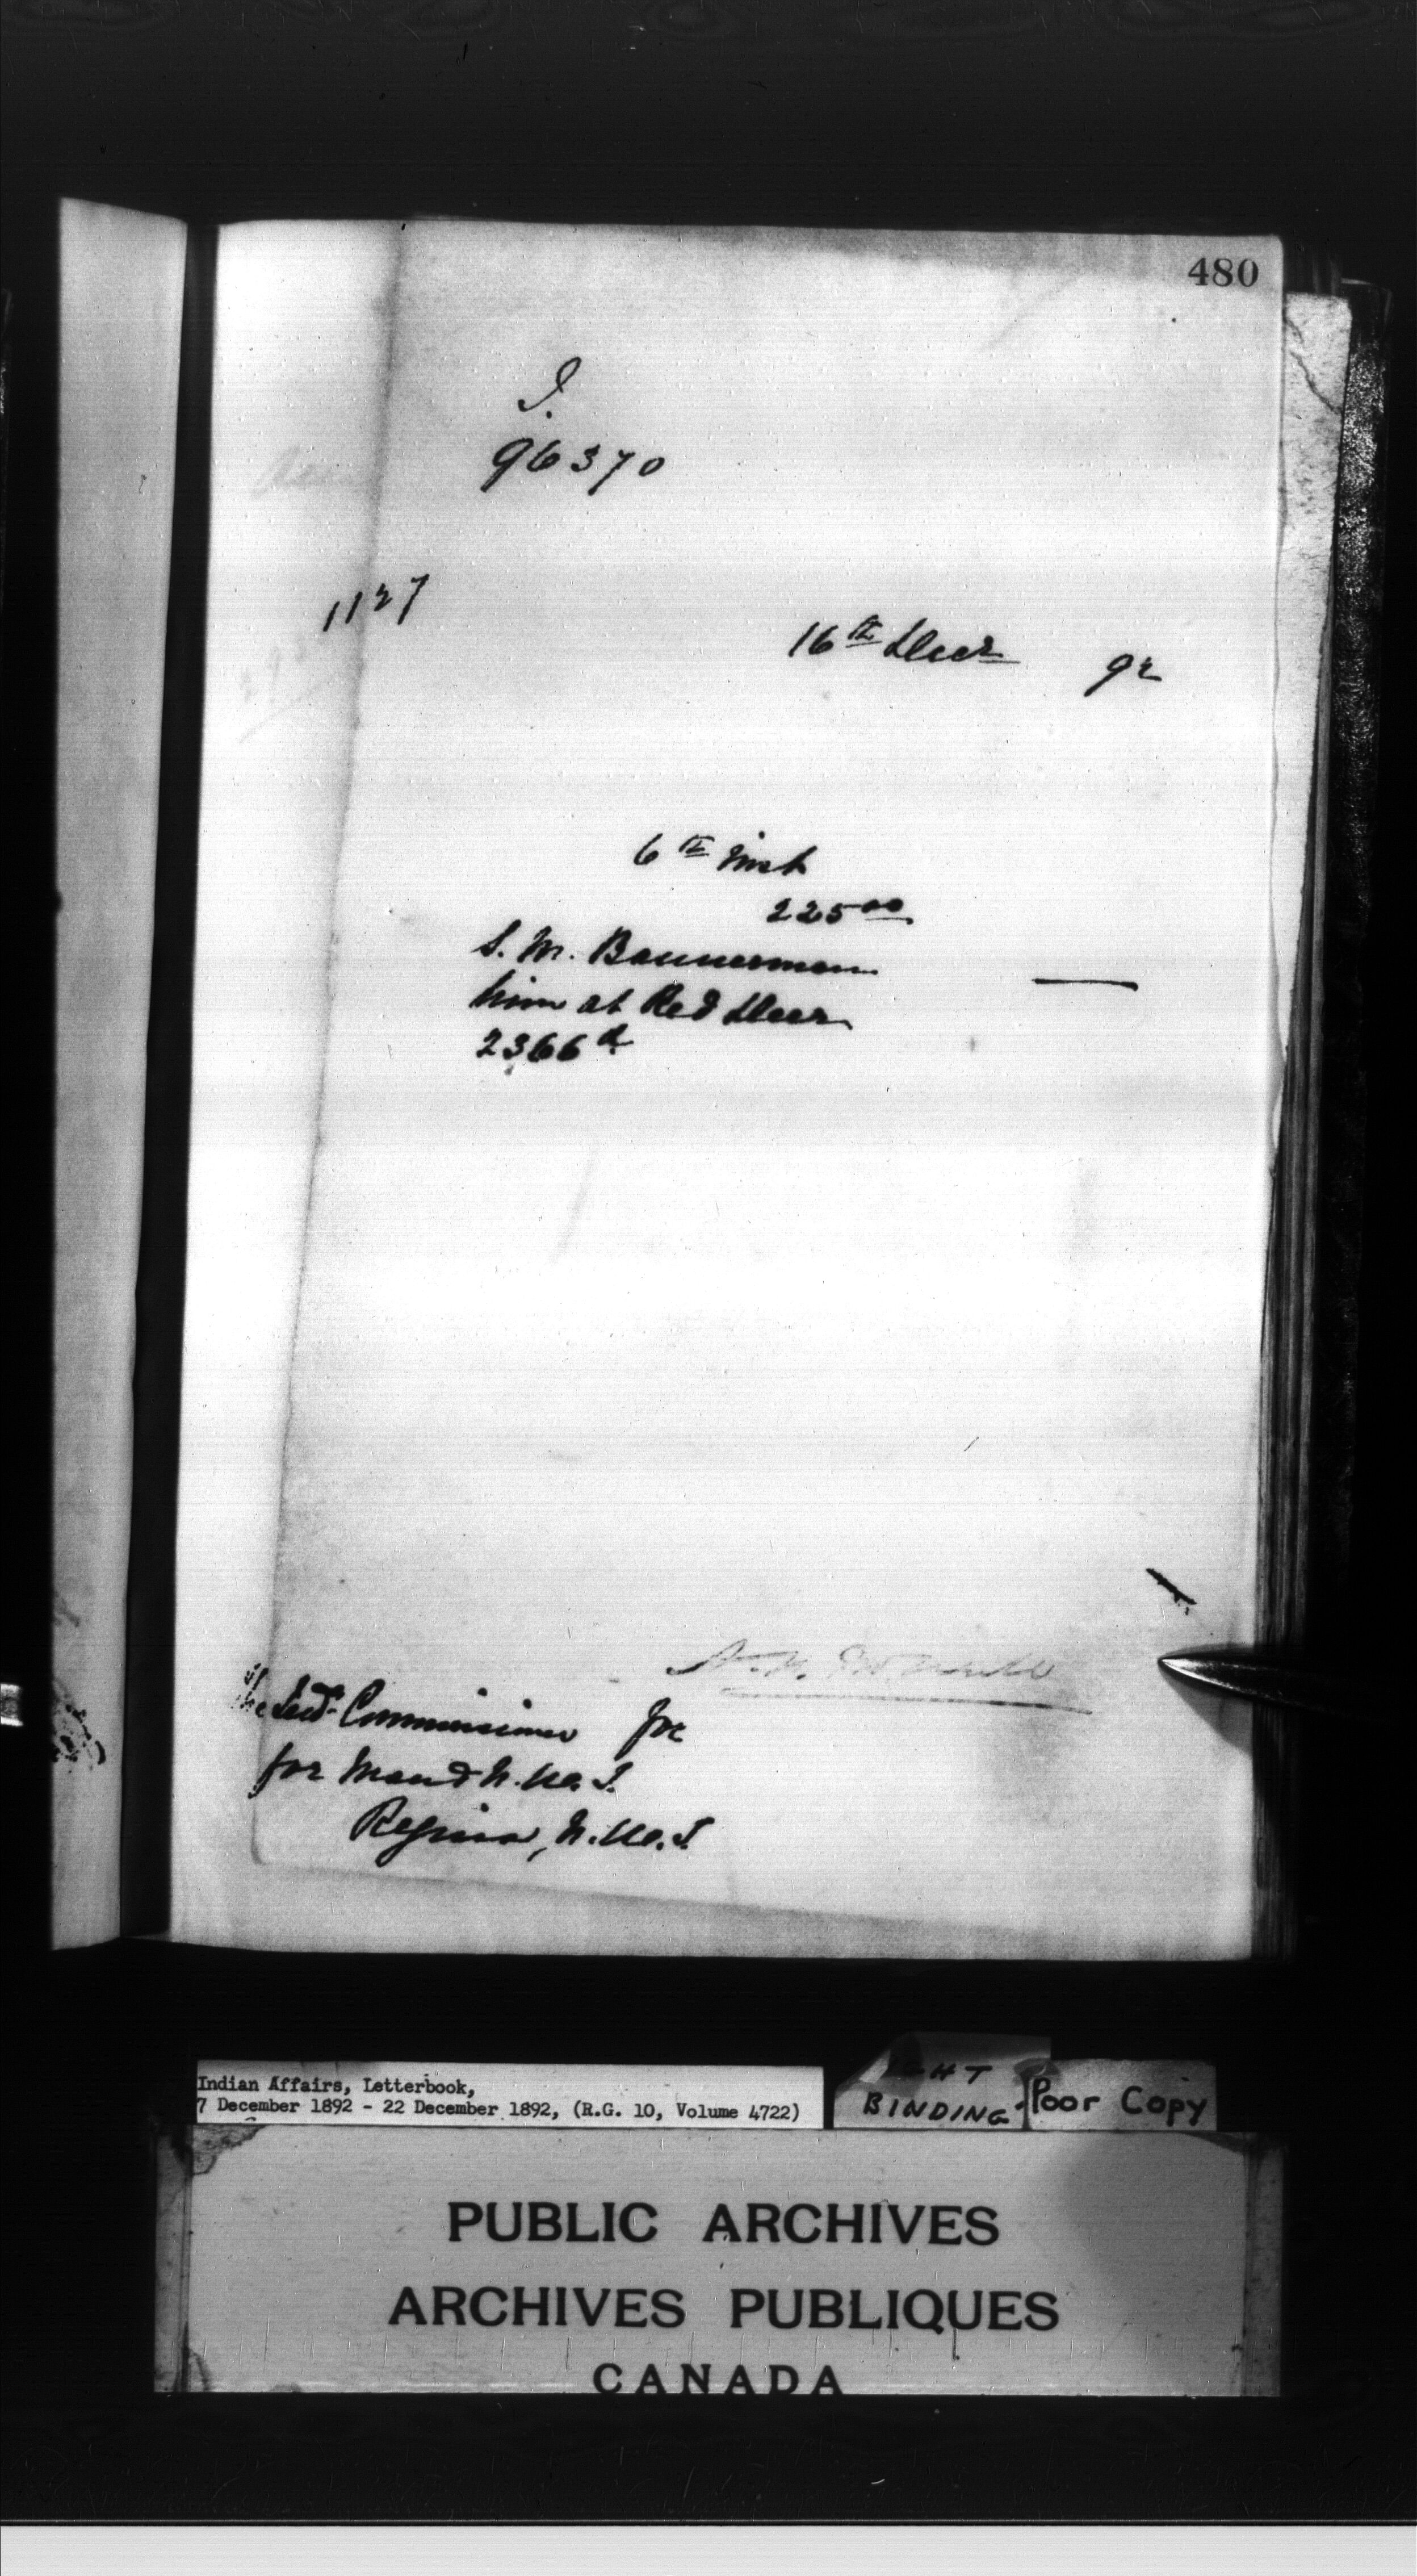 480
I.
96370
1127
16th Decr 92
6th inst
225 00
S. M. Bannerman
him at Red Deer
2366 d.
The Ind. Commissioner for
for Man & N.W.T.
Regina, N.W.T.
Indian Affairs, Letterbook,
7 December 1892 - 22 December 1892, (R.G. 10, Volume 4722)
BINDING
Poor Copy
PUBLIC ARCHIVES
ARCHIVES PUBLIQUES
CANADA